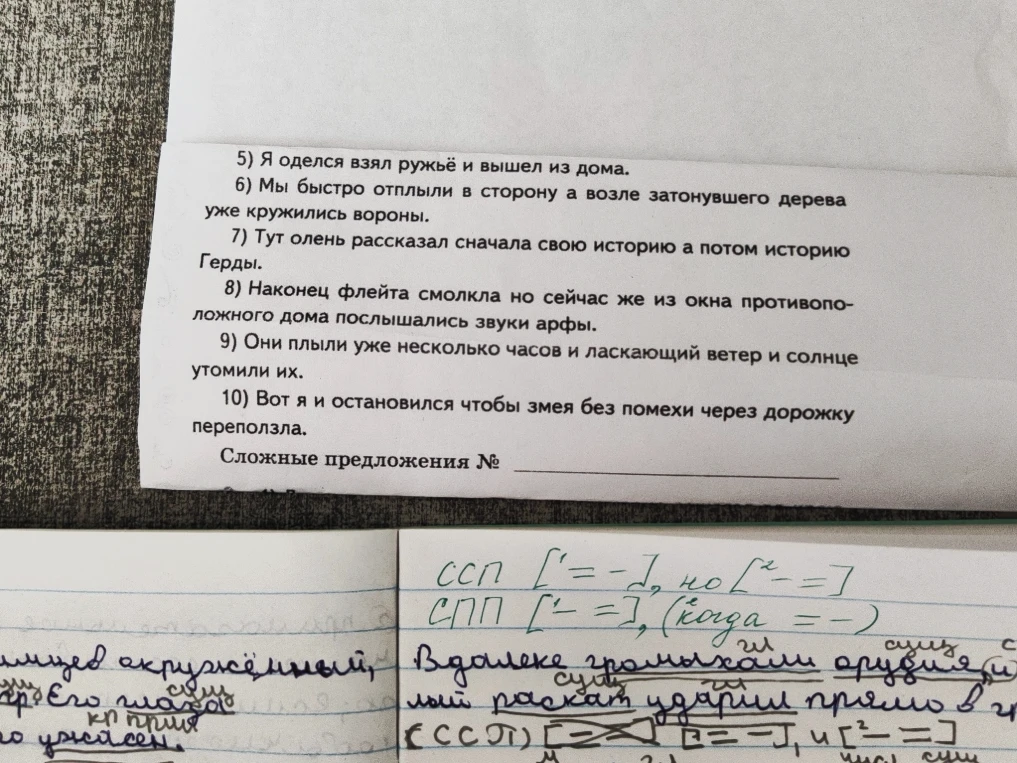 5) Я оделся взял ружьё и вышел из дома.
6) Мы быстро отплыли в сторону а возле затонувшего дерева
уже кружились вороны.
7) Тут олень рассказал сначала свою историю а потом историю
Герды.
8) Наконец флейта смолкла но сейчас же из окна противопо-
ложного дома послышались звуки арфы.
9) Они плыли уже несколько часов и ласкающий ветер и солнце
утомили их.
10) Вот я и остановился чтобы змея без помехи через дорожку
переползла.
Сложные предложения №
ССП [¹ = -], но [² - =]
СПП [¹ - =], (²когда = -)
окружённый,
гл сущ
Вдалеке громыхали орудия, и
сущ
Его глаза
сущ гл
лый раскат ударил прямо в
кр прил
ужасен.
(ССП) [= -], и [² - =]